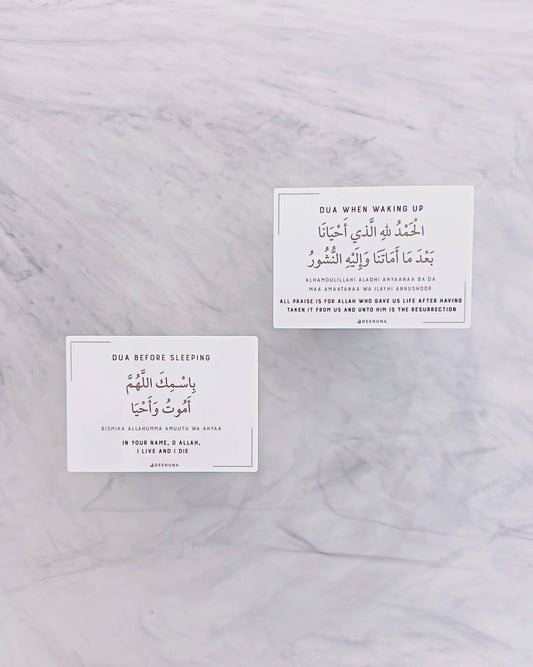 DUA WHEN WAKING UP
الْحَمْدُ لِلَّهِ الَّذِي أَحْيَانَا
بَعْدَ مَا أَمَاتَنَا وَإِلَيْهِ النُّشُورُ
ALHAMDULILLAHI ALADHI AHYAANAA BA DA
MAA AMAATANAA WA ILAYHI ANNUSHOOR
ALL PRAISE IS FOR ALLAH WHO GAVE US LIFE AFTER HAVING
TAKEN IT FROM US AND UNTO HIM IS THE RESURRECTION
DEENUNA
DUA BEFORE SLEEPING
بِاسْمِكَ اللَّهُمَّ
أَمُوتُ وَأَحْيَا
BISMIKA ALLAHUMMA AMUUTU WA AHYAA
IN YOUR NAME, O ALLAH,
I LIVE AND I DIE
DEENUNA